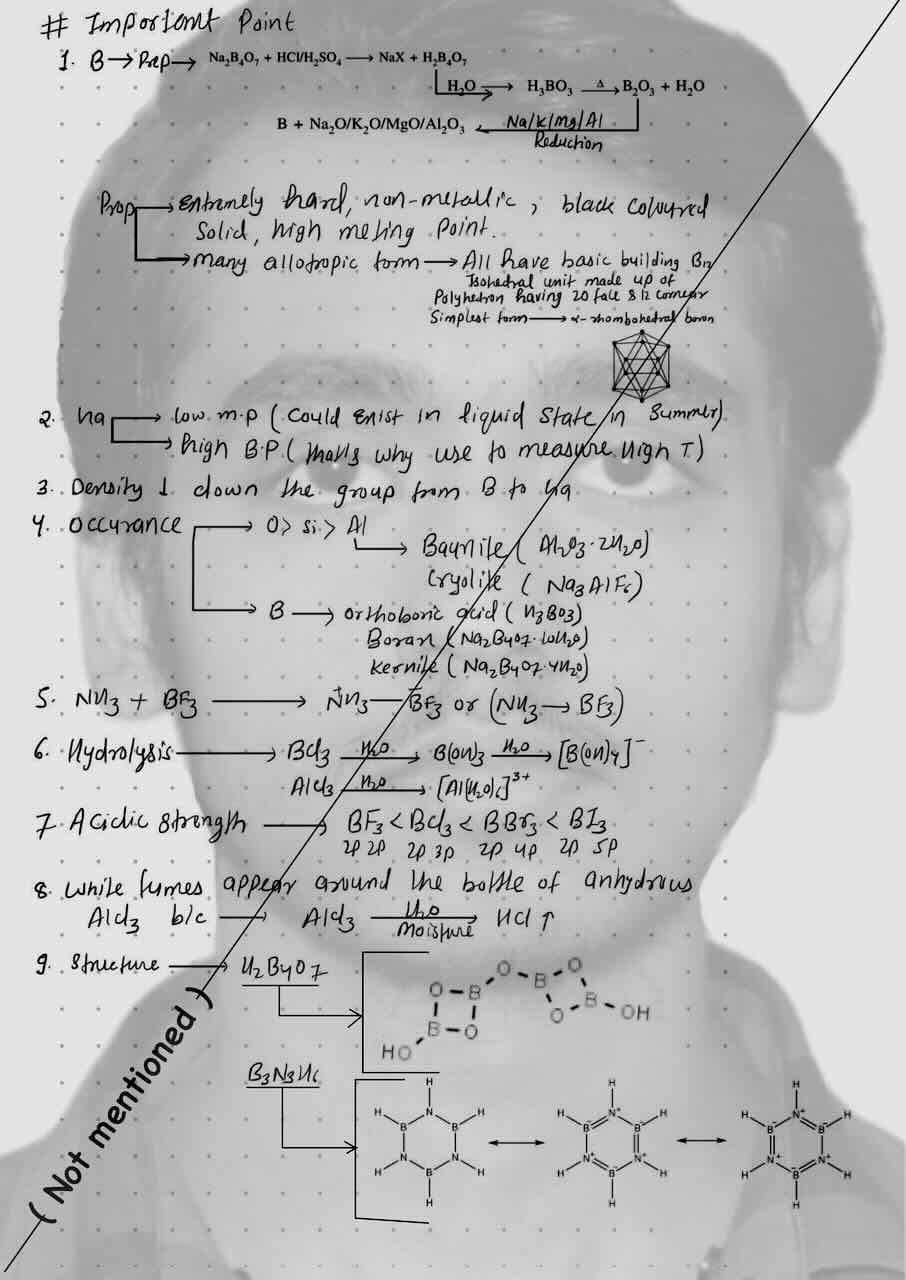 # Important Point
1. B → Prep → Na₂B₄O₇ + HCl/H₂SO₄ ⟶ NaX + H₂B₄O₇
H₂O ⟶ H₃BO₃ —Δ→ B₂O₃ + H₂O
B + Na₂O/K₂O/MgO/Al₂O₃ ← Na/K/Mg/Al Reduction
Prop → Extremely hard, non-metallic, black coloured
Solid, high melting point.
→ many allotropic form → All have basic building B₁₂
Isohedral unit made up of
Polyhedron having 20 face & 12 cornear
Simplest form → α-rhombohedral boron
2. Ga → low m.p (Could exist in liquid state in Summer)
→ high B.P (that's why use to measure high T)
3. Density ↓ down the group from B to Ga
4. Occurance → O > Si > Al
→ Bauxite (Al₂O₃·2H₂O)
Cryolite (Na₃AlF₆)
→ B → Orthoboric acid (H₃BO₃)
Borax (Na₂B₄O7·10H₂O)
Kernite (Na₂B₄O7·4H₂O)
5. NH₃ + BF₃ ⟶ N⁺H₃—B⁻F₃ or (NH₃ → BF₃)
6. Hydrolysis → BCl₃ —H₂O→ B(OH)₃ —H₂O→ [B(OH)₄]⁻
AlCl₃ —H₂O→ [Al(H₂O)₆]³⁺
7. Acidic strength → BF₃ < BCl₃ < BBr₃ < BI₃
2p 2p 2p 3p 2p 4p 2p 5p
8. White fumes appear around the bottle of anhydrous
AlCl₃ b/c → AlCl₃ —H₂O Moisture→ HCl ↑
9. Structure → H₂B₄O7
O B O B O
O B O B OH
HO B O
B₃N₃H₆
H H H
H N H H N⁺ H H N⁺ H
B B B⁻ B⁻ B⁻ B⁻
N N N⁺ N⁺ N⁺ N⁺
H B H H B⁻ H H B⁻ H
H H H
(Not mentioned)